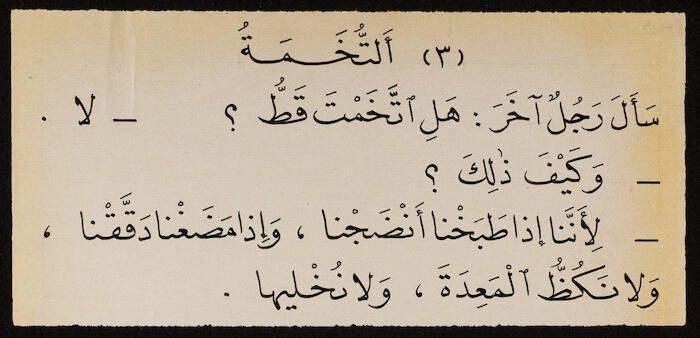 (٣) اَلتُّخَمَةُ
سَأَلَ رَجُلٌ آخَرَ : هَلِ ٱتَّخَمْتَ قَطُّ ؟ — لا .
— وَكَيْفَ ذٰلِكَ ؟
— لِأَنَّنا إذا طَبَخْنا أَنْضَجْنا ، وَإِذا مَضَغْنا دَقَّقْنا ،
وَلا نَكُظُّ ٱلْمَعِدَةَ ، وَلا نُخْليها .